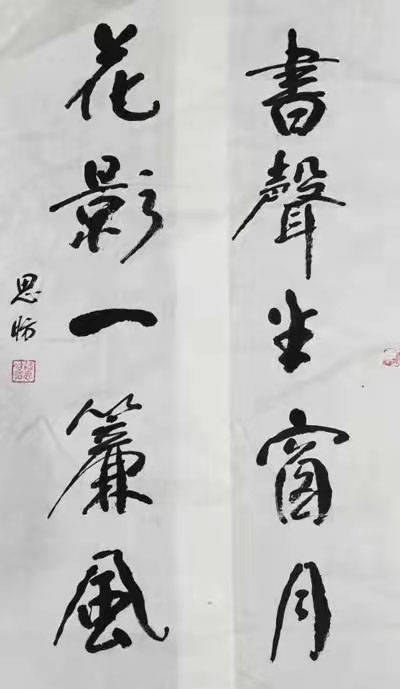 書聲半窗月
花影一簾風
思昉